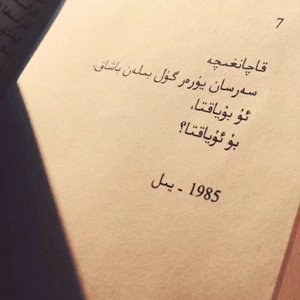 7
قاچانغىچە
سەرسان يۈرەر گۈل بىلەن باشاق،
ئۇ بۇياقتا،
بۇ ئۇياقتا؟
1985 - يىل